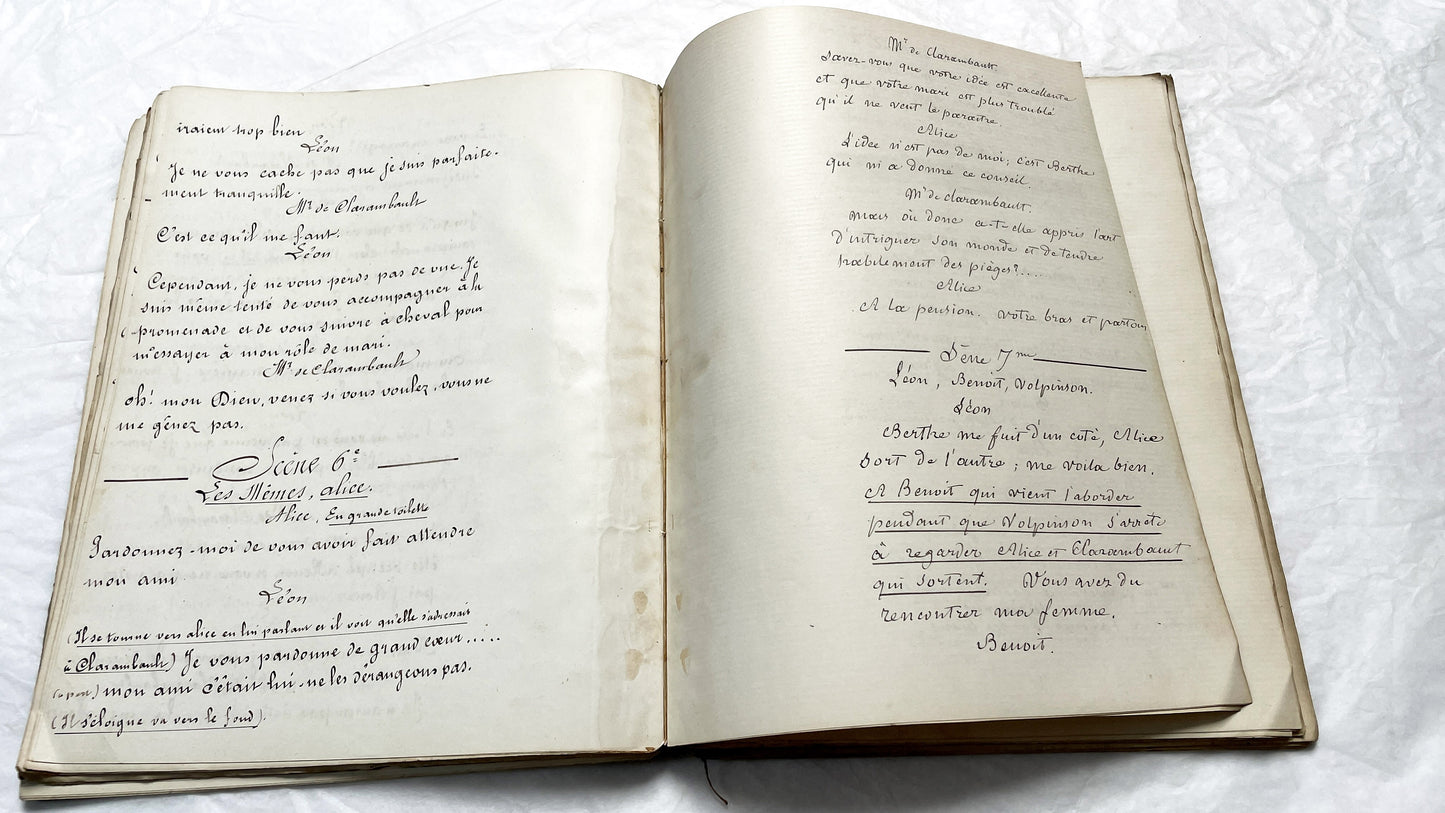 iraient trop bien
Léon
Je ne vous cache pas que je suis parfaite-
ment tranquille.
Mr de Clarambault
C'est ce qu'il me faut.
Léon
Cependant, je ne vous perds pas de vue. Je
suis même tenté de vous accompagner à la
promenade et de vous suivre à cheval pour
m'essayer à mon rôle de mari.
Mr de Clarambault
oh! mon Dieu, venez si vous voulez, vous ne
me gênez pas.
Scène 6e
Les Mêmes, alice.
Alice, En grande toilette
Pardonnez-moi de vous avoir fait attendre
mon ami
Léon
(Il se tourne vers alice en lui parlant et il voit qu'elle s'adressait
à Clarambault) Je vous pardonne de grand cœur.....
(à part) mon ami c'était lui - ne les dérangeons pas.
(Il s'éloigne va vers le fond).
Mr de Clarambault
Savez-vous que votre idée est excellente
et que votre mari est plus troublé
qu'il ne veut le paraître.
Alice
L'idée n'est pas de moi; c'est Berthe
qui m'a donné ce conseil.
Mr de Clarambault.
mais où donc a-t-elle appris l'art
d'intriguer son monde et de tendre
habilement des pièges?.....
Alice
A la pension. votre bras et partons
Sène 7me
Léon, Benoit, Volpinson.
Léon
Berthe me fuit d'un coté, Alice
sort de l'autre; me voila bien.
A Benoit qui vient l'aborder
pendant que Volpinson s'arrete
à regarder Alice et Clarambault
qui sortent. Vous avez du
rencontrer ma femme.
Benoit.